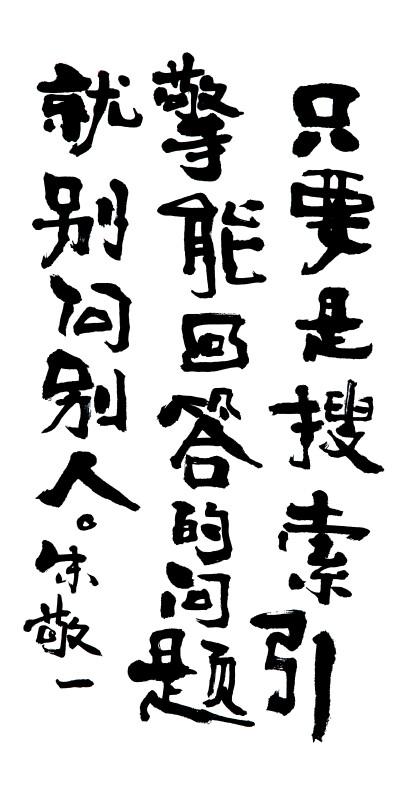 只要是搜索引
擎能回答的问题
就别问别人。朱敬一